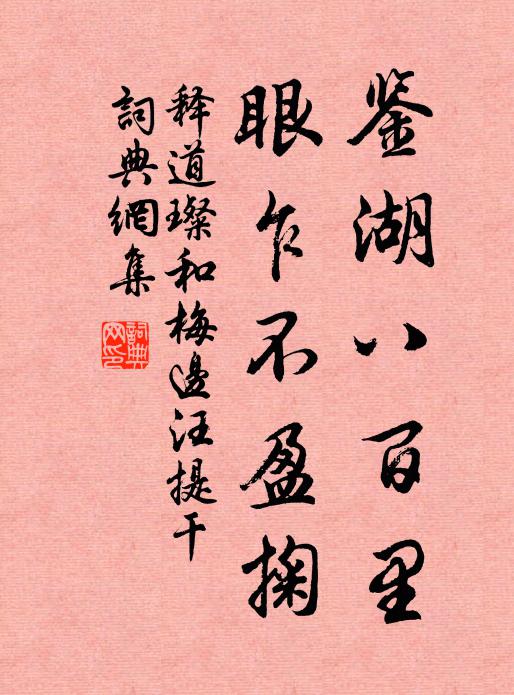 鉴湖八百里
眼乍不盈掬
释道璨和梅邊汪提干
詞典網集
詞典网印